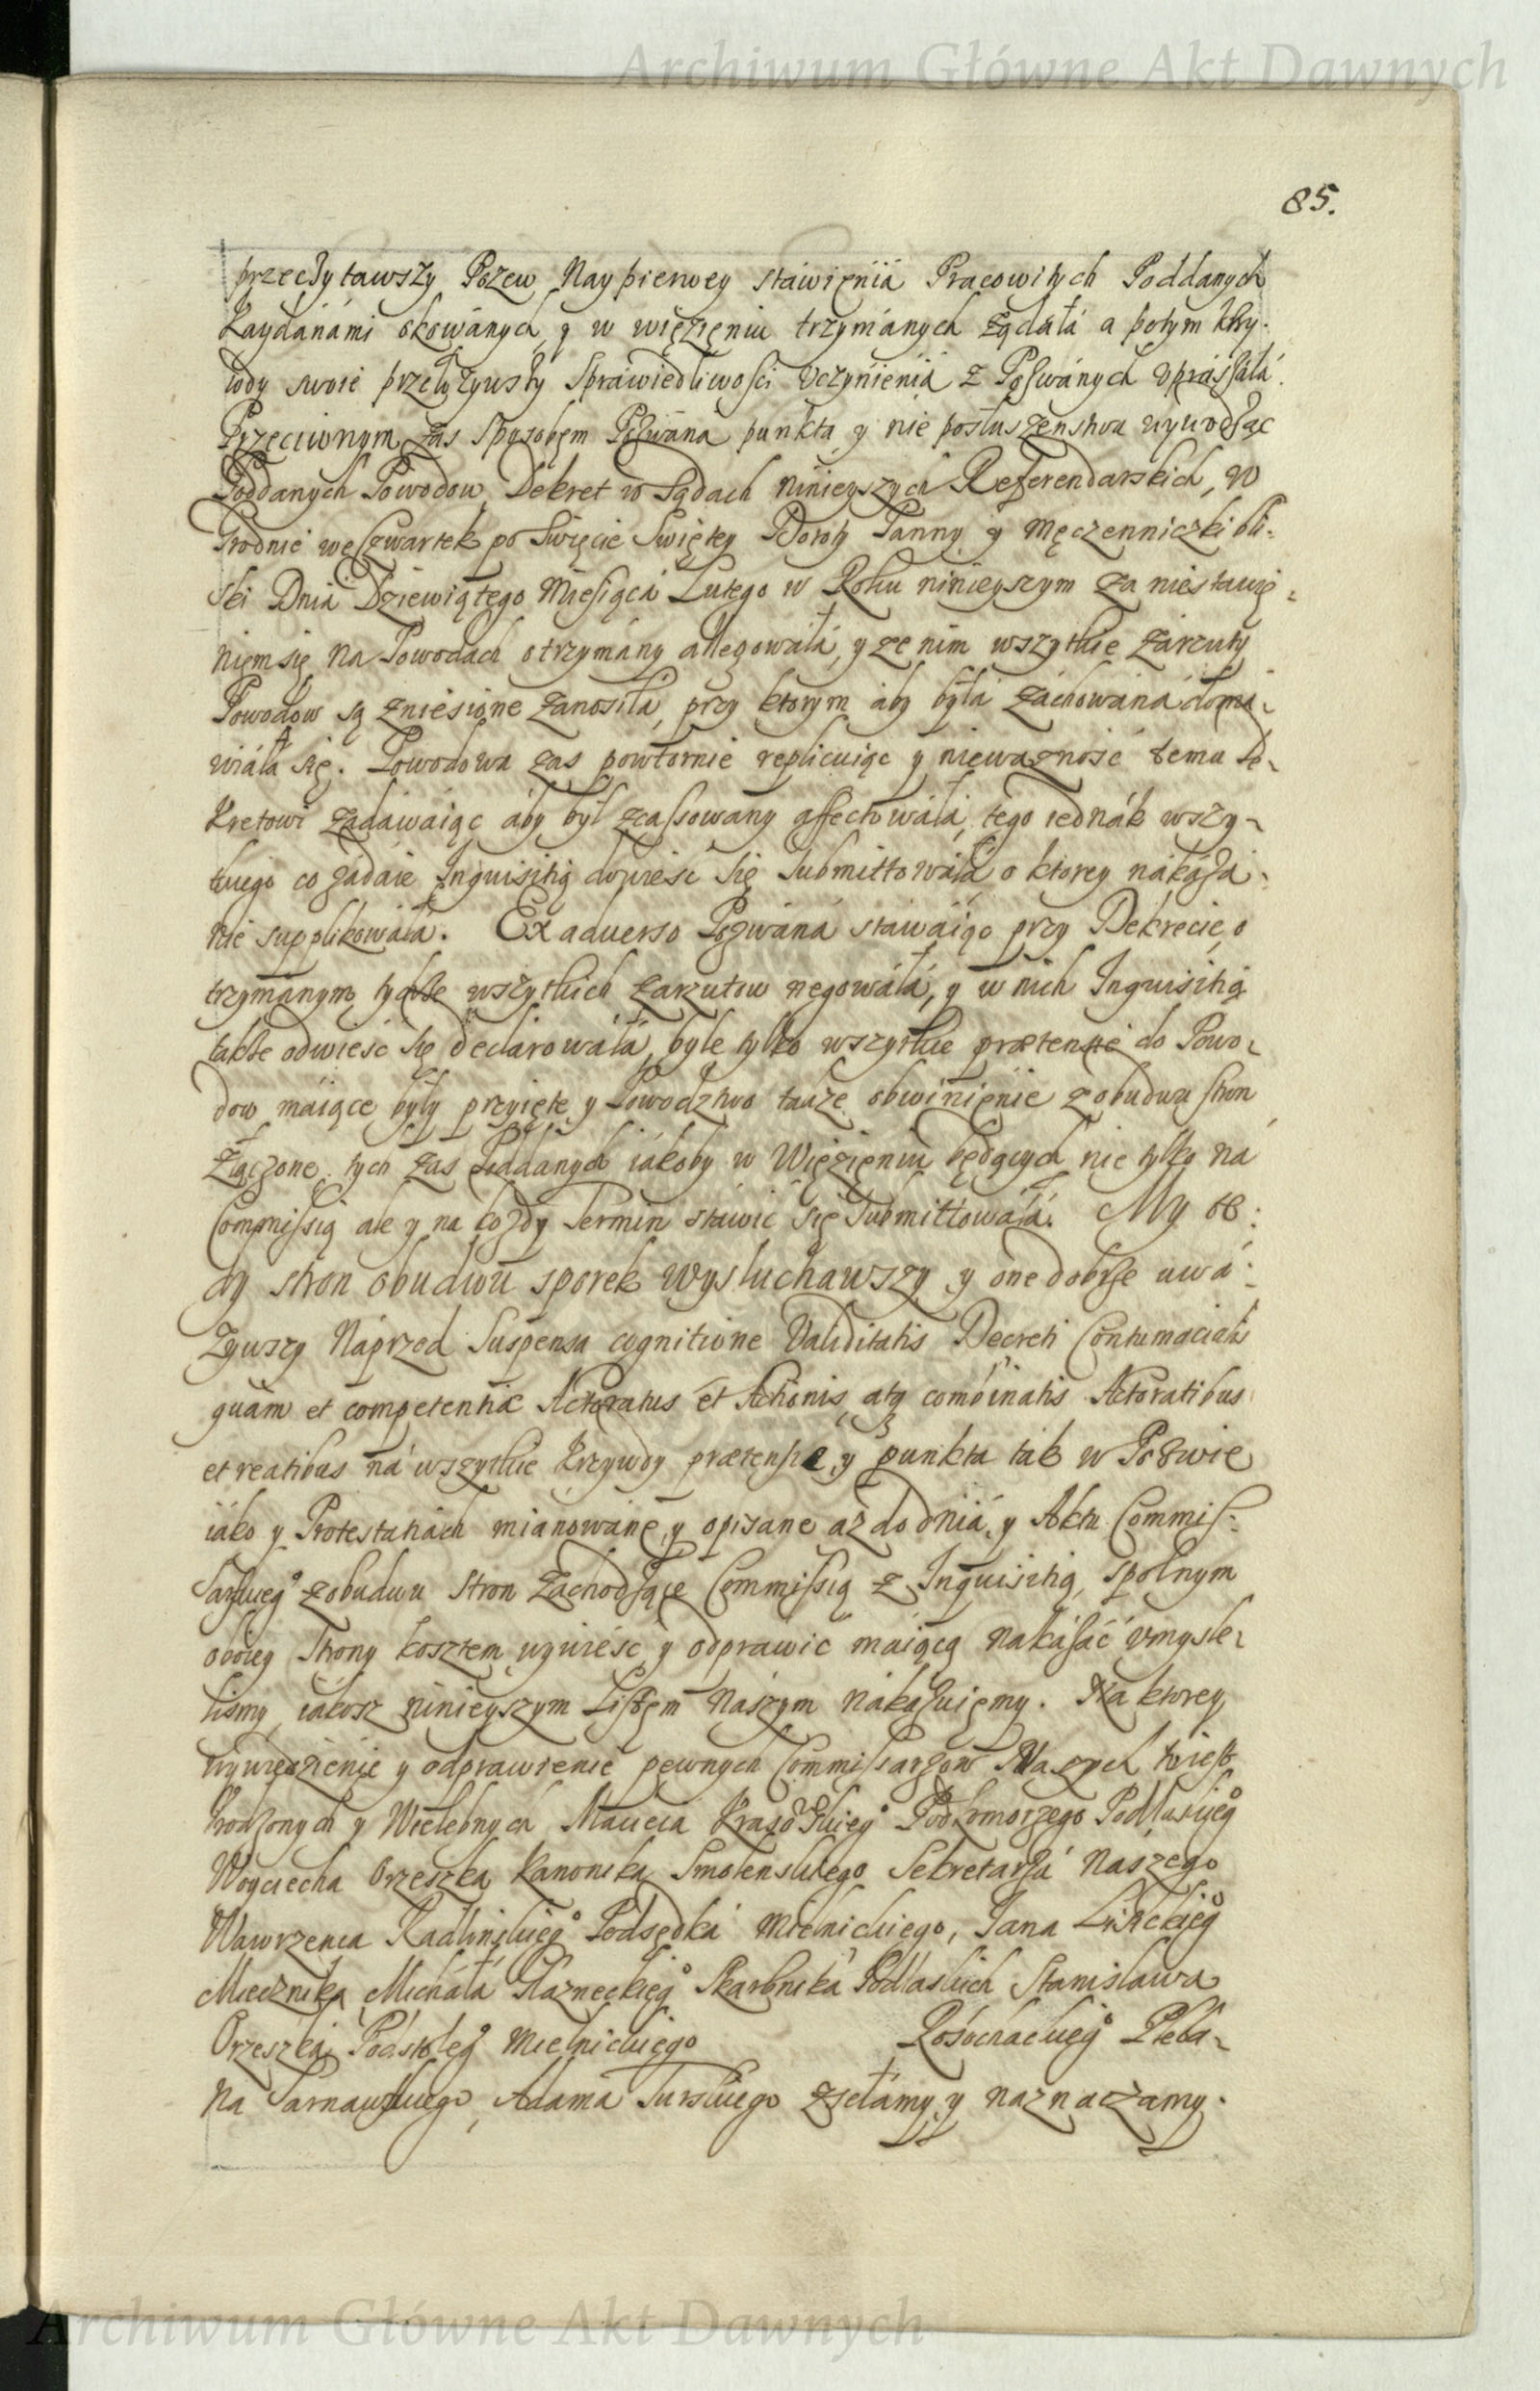 Archiwum Główne Akt Dawnych
85.
przeczytawszy Pozew Naypierwey stáwięniá Pracowitych Poddanych
Kaydánámi okowánych, y w więzięniu trzymánych żądáłá a potym krzy-
wdy swoie przełożywszy Spráwiedliwości Uczynieniá z Pozwánych upraszáłá.
Przeciwnym zas Sposobęm Pozwána punktá y nie posłuszenstwa wywodząc
Poddanych Powodow, Dekret w Sądach ninieyszych Referendarskich, w
Grodnie we Czwartek po Swięcie Swiętey Doroty Panny y Męczenniczki bli-
ski Dniá Dziewiątego Miesiącá Lutego w Roku ninieyszym za niestawię-
nięm się na Powodach otrzymány allegowáłá, y ze nim wszytkie zárzuty
Powodow są zniesione zanosiłá, przy ktorym aby byłá záchowána domá-
wiáłá się. Powodowa zas powtornie replicuiąc y nieważność temu De-
kretowi zadáwaiąc áby był zcassowany affectowáłá, tego iednák wszy-
tkiego co zádaie Inquisitią dowieść się submittowáłá o ktorey nákáza-
nie supplikowáłá. Ex aduerso Pozwána stáwáiąc przy Dekrecie o
trzymánym tychże wszytkich zarzutow negowáłá, y w nich Inquisitią
także odwieść się declarowáłá, byle tylko wszytkie prætensie do Powo-
dow máiące były przyięte y Powodztwo także obwinięnie z obudwu stron
złączone, tych zas Poddanych iákoby w Więzięniu będących nie tylko ná
Commissią ale y na kożdy Termin stáwić się submittowáłá. My te-
dy stron obudwu sporek wysłuchawszy y one dobrze uwá-
żywszy Náprzod Suspensa cognitione Validitatis Decreti Contumacialis
quám et competentiæ Actoratus et Actionis, atq combinatis Actoratibus
et reatibus ná wszytkie krzywdy prætensie y punkta ták w Pozwie
iáko y Protestatiách mianowáne y opisane aż do dniá y Aktu Commis-
sarskieg° z obudwu stron zachodzące Commissią z Inquisitią, spolnym
oboiey strony kosztem wywieść y odprawić máiącą nakázáć umysle-
lismy, iákosz ninieyszym Listęm Nászym nákázuięmy. Na ktorey
wywiedzienie y odprawienie pewnych Commissarzow Naszych Wiel.
krodzonych y Wielebnych Macieia Krasowskieg° Podkomorzego Podlaskieg°
Woyciecha Orzeszka Kanonika Smolenskiego Sekretarzá Nászego
Wawrzenca Kadłinskieg° Podsędká Mielnickiego, Jana Lwickieg°
Miecznika, Micháłá Kazneckieg° Skarbniká Podlaskich Stanisława
Orzeszká Podstoleg° Mielnickiego Rosochackieg° Pleba-
na Tarnawskiego, Adama Turskiego zsełámy y naznaczamy.
Archiwum Główne Akt Dawnych